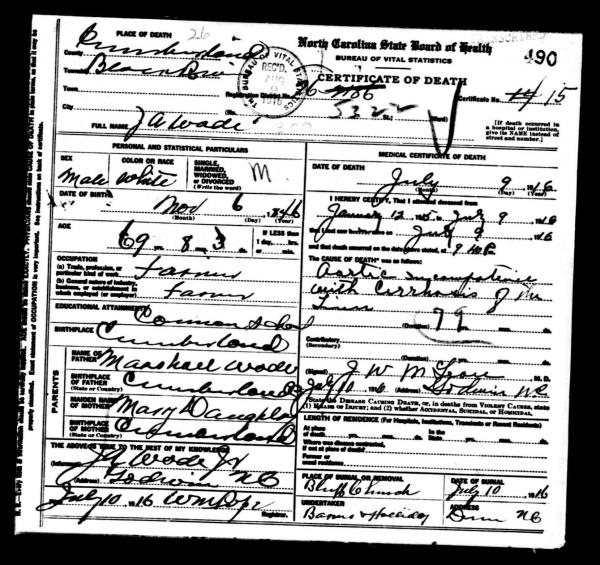 PLACE OF DEATH 26
North Carolina State Board of Health
190
BUREAU OF VITAL STATISTICS
County Cumberland
CERTIFICATE OF DEATH
Township Black River
THE BUREAU OF VITAL STATISTICS
REC'D.
AUG
1916
Town
Registration District No. 6
5322
Certificate No. 15
City
St.;
Ward)
[If death occurred in
a hospital or institution,
give its NAME instead of
street and number.]
FULL NAME J A Wade
PERSONAL AND STATISTICAL PARTICULARS
SEX
Male
COLOR OR RACE
White
SINGLE,
MARRIED,
WIDOWED,
OR DIVORCED
(Write the word)
M.
DATE OF BIRTH
Nov 6 1846
(Month) (Day) (Year)
AGE
69 yrs. 8 mos. 3 ds.
If LESS than
1 day, hrs.
or min.
OCCUPATION
(a) Trade, profession, or
particular kind of work Farmer
(b) General nature of industry,
business, or establishment in
which employed (or employer) Farmer
EDUCATIONAL ATTAINMENTS Common School
BIRTHPLACE
Cumberland
PARENTS
NAME OF
FATHER Marshall Wade
BIRTHPLACE
OF FATHER
(State or Country) Cumberland
MAIDEN NAME
OF MOTHER Mary
BIRTHPLACE
OF MOTHER
(State or Country) Cumberland
THE ABOVE IS TRUE TO THE BEST OF MY KNOWLEDGE
(Informant) J A Wade Jr
(Address) Godwin NC
July 10 1916
Registrar.
MEDICAL CERTIFICATE OF DEATH
DATE OF DEATH
July 9 1916
(Month) (Day) (Year)
I HEREBY CERTIFY, That I attended deceased from
January 12 to July 9 1916
that I last saw alive on July 9 1916
and that death occurred on the date above stated, at 9
The CAUSE OF DEATH* was as follows:
Aortic
with Cirrhosis of the
Liver
79
(Duration) yrs. mos. ds.
Contributory
(Secondary)
(Duration) yrs. mos. ds.
(Signed) J W M M. D.
July 10 1916 (Address) Godwin NC
*State the DISEASE CAUSING DEATH, or, in deaths from VIOLENT CAUSES, state
(1) MEANS OF INJURY; and (2) whether ACCIDENTAL, SUICIDAL, OR HOMICIDAL.
LENGTH OF RESIDENCE (For Hospitals, Institutions, Transients or Recent Residents)
At place
of death yrs. mos. ds.
In the
State yrs. mos. ds.
Where was disease contracted,
if not at place of death?
Former or
usual residence
PLACE OF BURIAL OR REMOVAL
Bluff Church
DATE OF BURIAL
July 10 1916
UNDERTAKER
Barnes & Holliday
ADDRESS
Dunn NC